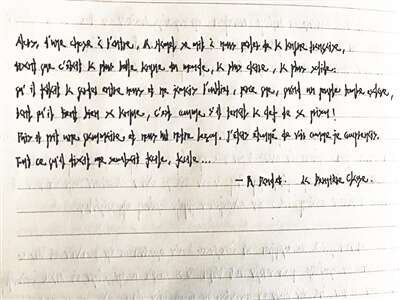 Alors, d'une chose à l'autre, M. Hamel se mit à nous parler de la langue française,
disant que c'était la plus belle langue du monde, la plus claire, la plus solide :
qu'il fallait la garder entre nous et ne jamais l'oublier, parce que, quand un peuple tombe esclave,
tant qu'il tient bien sa langue, c'est comme s'il tenait la clef de sa prison !
Puis il prit une grammaire et nous lut notre leçon. J'étais étonné de voir comme je comprenais.
Tout ce qu'il disait me semblait facile, facile...
— A. Daudet. La Dernière Classe.